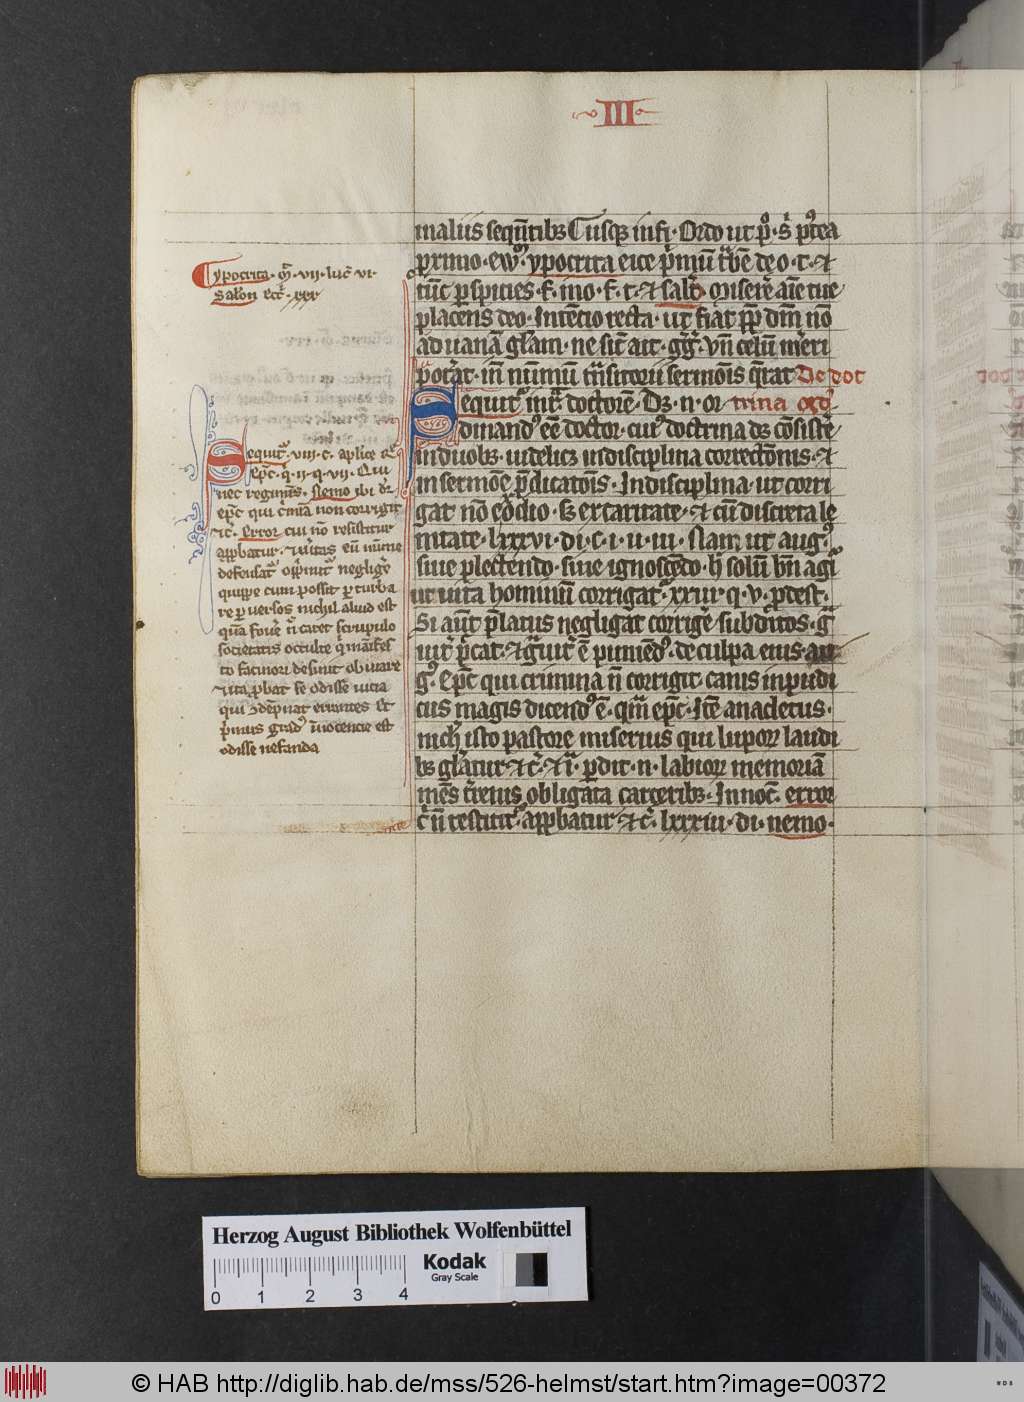 III
maliis sequ̅tibꝫ Cusqꝫ in fi · Ordo ut pͦ · s̓ pꝰtea
primo · ew̅ · ypocrita eice pͥmu̅ tͣbe̅ de o · t · et
tu̅c p̱spicies · f · in o · f · t · et salō Misere̓ a̅ie tue
placens deo · Inte̅cio recta · ut fiat pp̅ d̅m no̅
ad uana̅ gl̓am · ne sic̅ ait · gͥg̓ · vn̅ celu̅ me̓ri
pot̓at · in̅ nu̅mu̅ tn̅sitorii sermo̅is q̅rat De doc
Sequit᷑ int̓ doctore̅ · Dꝫ · n · or trina ord̓
dinandꝰ e̅e doctor · cuiꝰ doctrina dꝫ co̅siste̓
in duobꝫ · uidelicꝫ in disciplina correctio̅nis · et
in sermo̅e p̅dicato̅is · In disciplina · ut corri
gat no̅ eo̅ dio · sꝫ ex caritate · et cu̅ discreta le
nitate · lxxxvi · di · c · i · ii · iii · Nam ut augꝰ
siue plectendo · siue ignosce̅do · h̓ solu̅ bn̅ agit᷑
ut uita hominu̅ corrigat᷑ · xxiii · q · v · p̱dest ·
Si aut̅ p̅latus negligat corrige̓ subditos · gͣ
uit̓ p̅cat · et gͣuit̓ e̅ puniendꝰ · de culpa eius · au
gꝰ · Ep̅c qui crimina n̅ corrigit · canis inpudi
cus magis dicendꝰ e̅ · qͣm ep̅c · Ite̅ anacletus ·
nich̓ isto pastore miserius qui lupoꝝ laudi
bꝫ gl̓atur et c̓ · et i̅ · p̱dit · n · labioꝝ memoria̅
me̅s t̓renis obligata carceribꝫ · Innoc̅ · error
c̓ n̅ restitit᷑ app̱batur et c̓ · lxxxiii · di · nemo ·
Ypocrita · m̅ · vii · luc̅ vi ·
Salōn ecc̓ · xxx
Sequit᷑ · viii · c · aplice
ep̅c · q̓ · ii · q · vii · Qui
nec regimi̅s · Nemo ibi d̓r
ep̅c qui c̓mina non corrigit
et c̓ · Error cui no̅ resistitur
app̱batur · et u̓itas cu̅ mi̅me
defensat᷑ opp̓mit᷑ neglige̓
quippe cum possit p̱turba
re p̱versos nichil aliud est
qͣm fove̓ n̅ caret scrupulo
societatis occulte q̓ manifes
to facinori desinit obviare
et ita p̱bat se odisse uicia
qui ↄde̅pnat errantes Et
p̓mus gradꝰ i̅nocencie est
odisse nefanda
Herzog August Bibliothek Wolfenbüttel
Kodak
Gray Scale
0 1 2 3 4
© HAB http://diglib.hab.de/mss/526-helmst/start.htm?image=00372